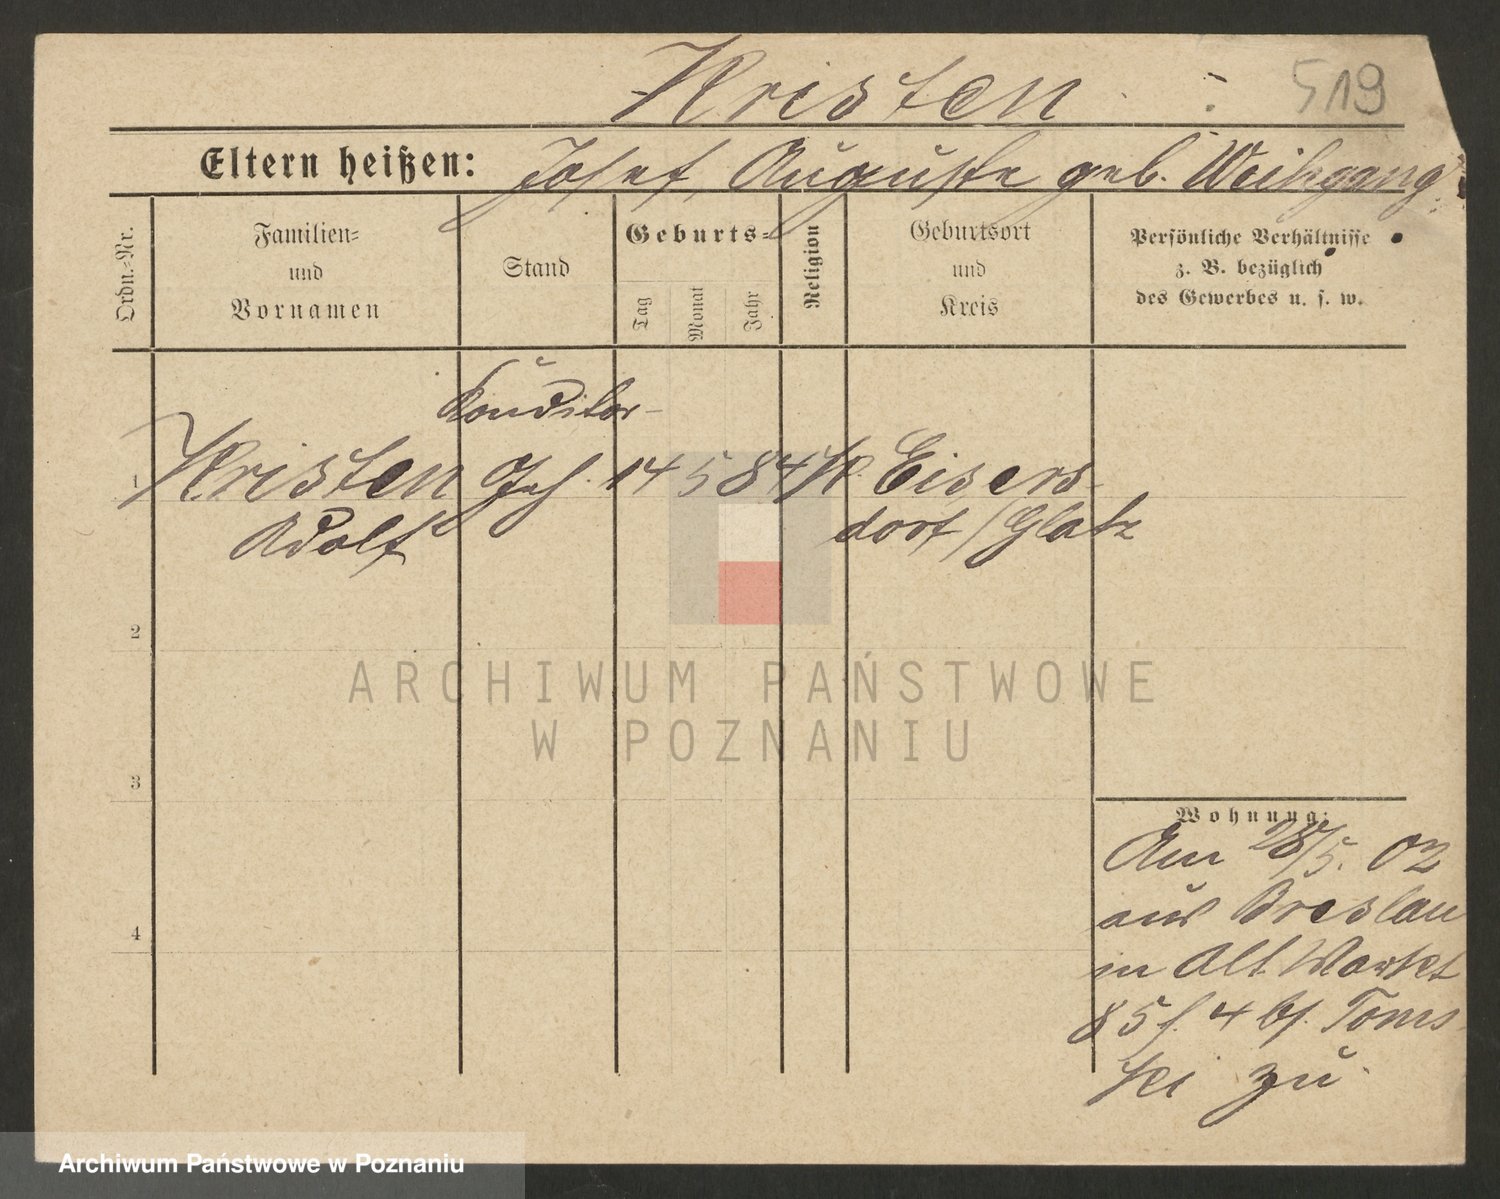 Kristen
519
Eltern heißen: Josef, Auguste geb. Weihrgang
Ordn.-Nr.
Familien-
und
Vornamen
Stand
Geburts-
Tag
Monat
Jahr
Religion
Geburtsort
und
Kreis
Persönliche Verhältnisse
z. B. bezüglich
des Gewerbes u. s. w.
Konditor-
1 Kristen Geh. 14 5 84 K. Eisers-
Adolf dorf / Glatz
2
3
4
ARCHIWUM PAŃSTWOWE
W POZNANIU
Wohnung:
Am 28/5. 02
aus Breslau
in Alt. Markt
85 f. 4 bf. Toms-
ki zu
Archiwum Państwowe w Poznaniu